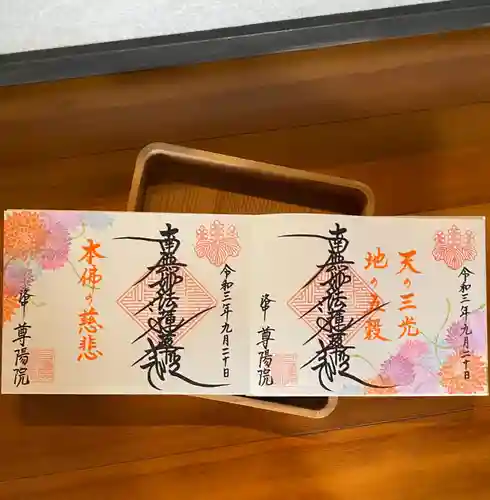 令和三年九月二十日
天の三光
地の五穀
南無妙法蓮華経
峰
尊陽院
令和三年九月二十日
南無妙法蓮華経
本佛の慈悲
尊陽院